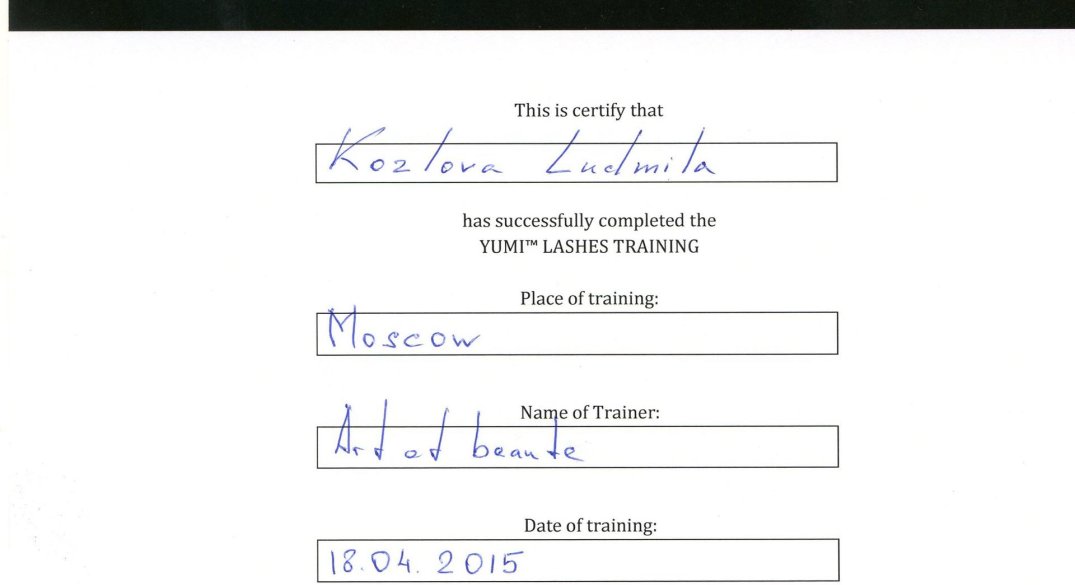 This is certify that
Kozlova Ludmila
has successfully completed the
YUMI™ LASHES TRAINING
Place of training:
Moscow
Name of Trainer:
Art of beaute
Date of training:
18.04.2015